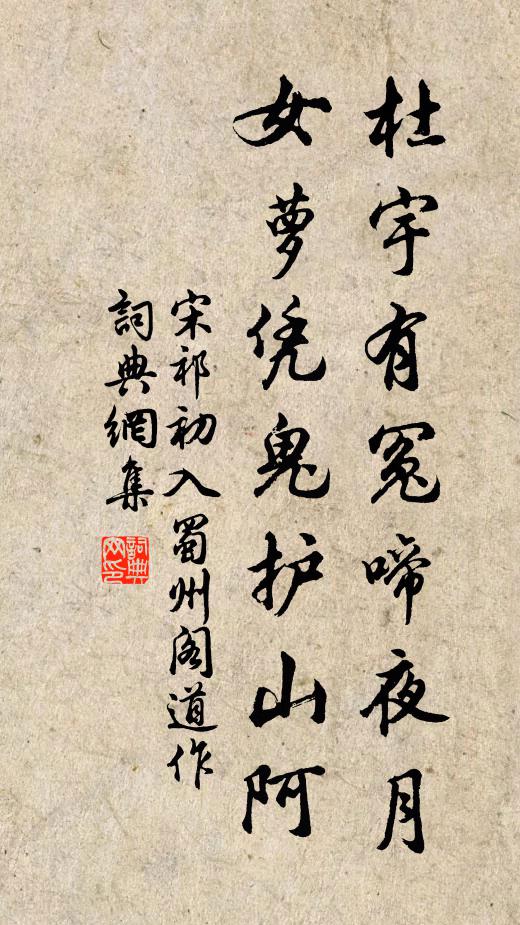 杜宇有冤啼夜月
女萝凭鬼护山阿
宋祁初入蜀州阁道作
詞典網集
詞典网印